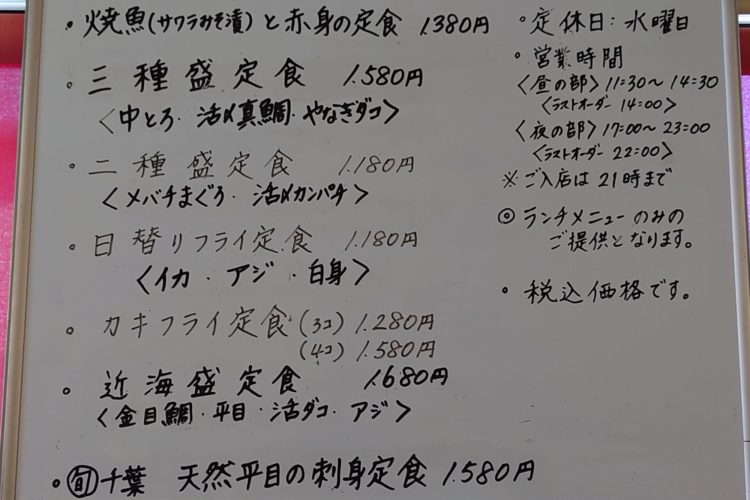 ・焼魚(サワラみそ漬)と赤身の定食 1.380円
・三種盛定食 1.580円
〈中とろ・活〆真鯛・やなぎダコ〉
・二種盛定食 1.180円
〈メバチまぐろ・活〆カンパチ〉
・日替りフライ定食 1.180円
〈イカ・アジ・白身〉
・カキフライ定食(3コ)1.280円
(4コ)1.580円
・近海盛定食 1.680円
〈金目鯛・平目・活ダコ・アジ〉
・㊬千葉 天然平目の刺身定食 1.580円
・定休日:水曜日
・営業時間
〈昼の部〉11:30〜14:30
〈ラストオーダー 14:00〉
〈夜の部〉17:00〜23:00
〈ラストオーダー 22:00〉
※ご入店は21時まで
◎ランチメニューのみの
ご提供となります。
・税込価格です。